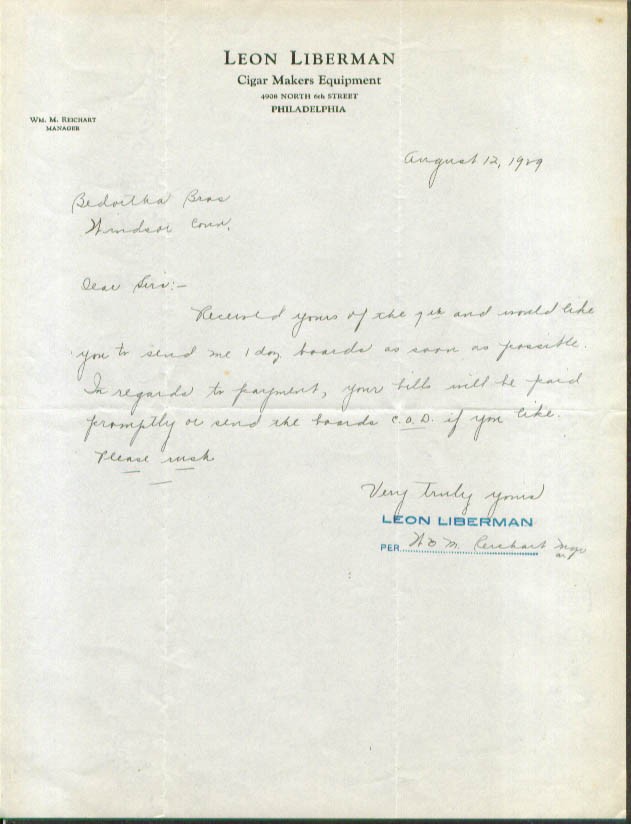 LEON LIBERMAN
Cigar Makers Equipment
4908 NORTH 6th STREET
PHILADELPHIA
WM. M. REICHART
MANAGER
August 12, 1929
Bedortha Bros
Windsor Conn.
Dear Sirs:-
Received yours of the 9th and would like
you to send me 1 doz boards as soon as possible.
In regards to payment, your bills will be paid
promptly or send the boards C.O.D. if you like.
Please rush
Very truly yours
LEON LIBERMAN
PER Wm M. Reichart Mgr